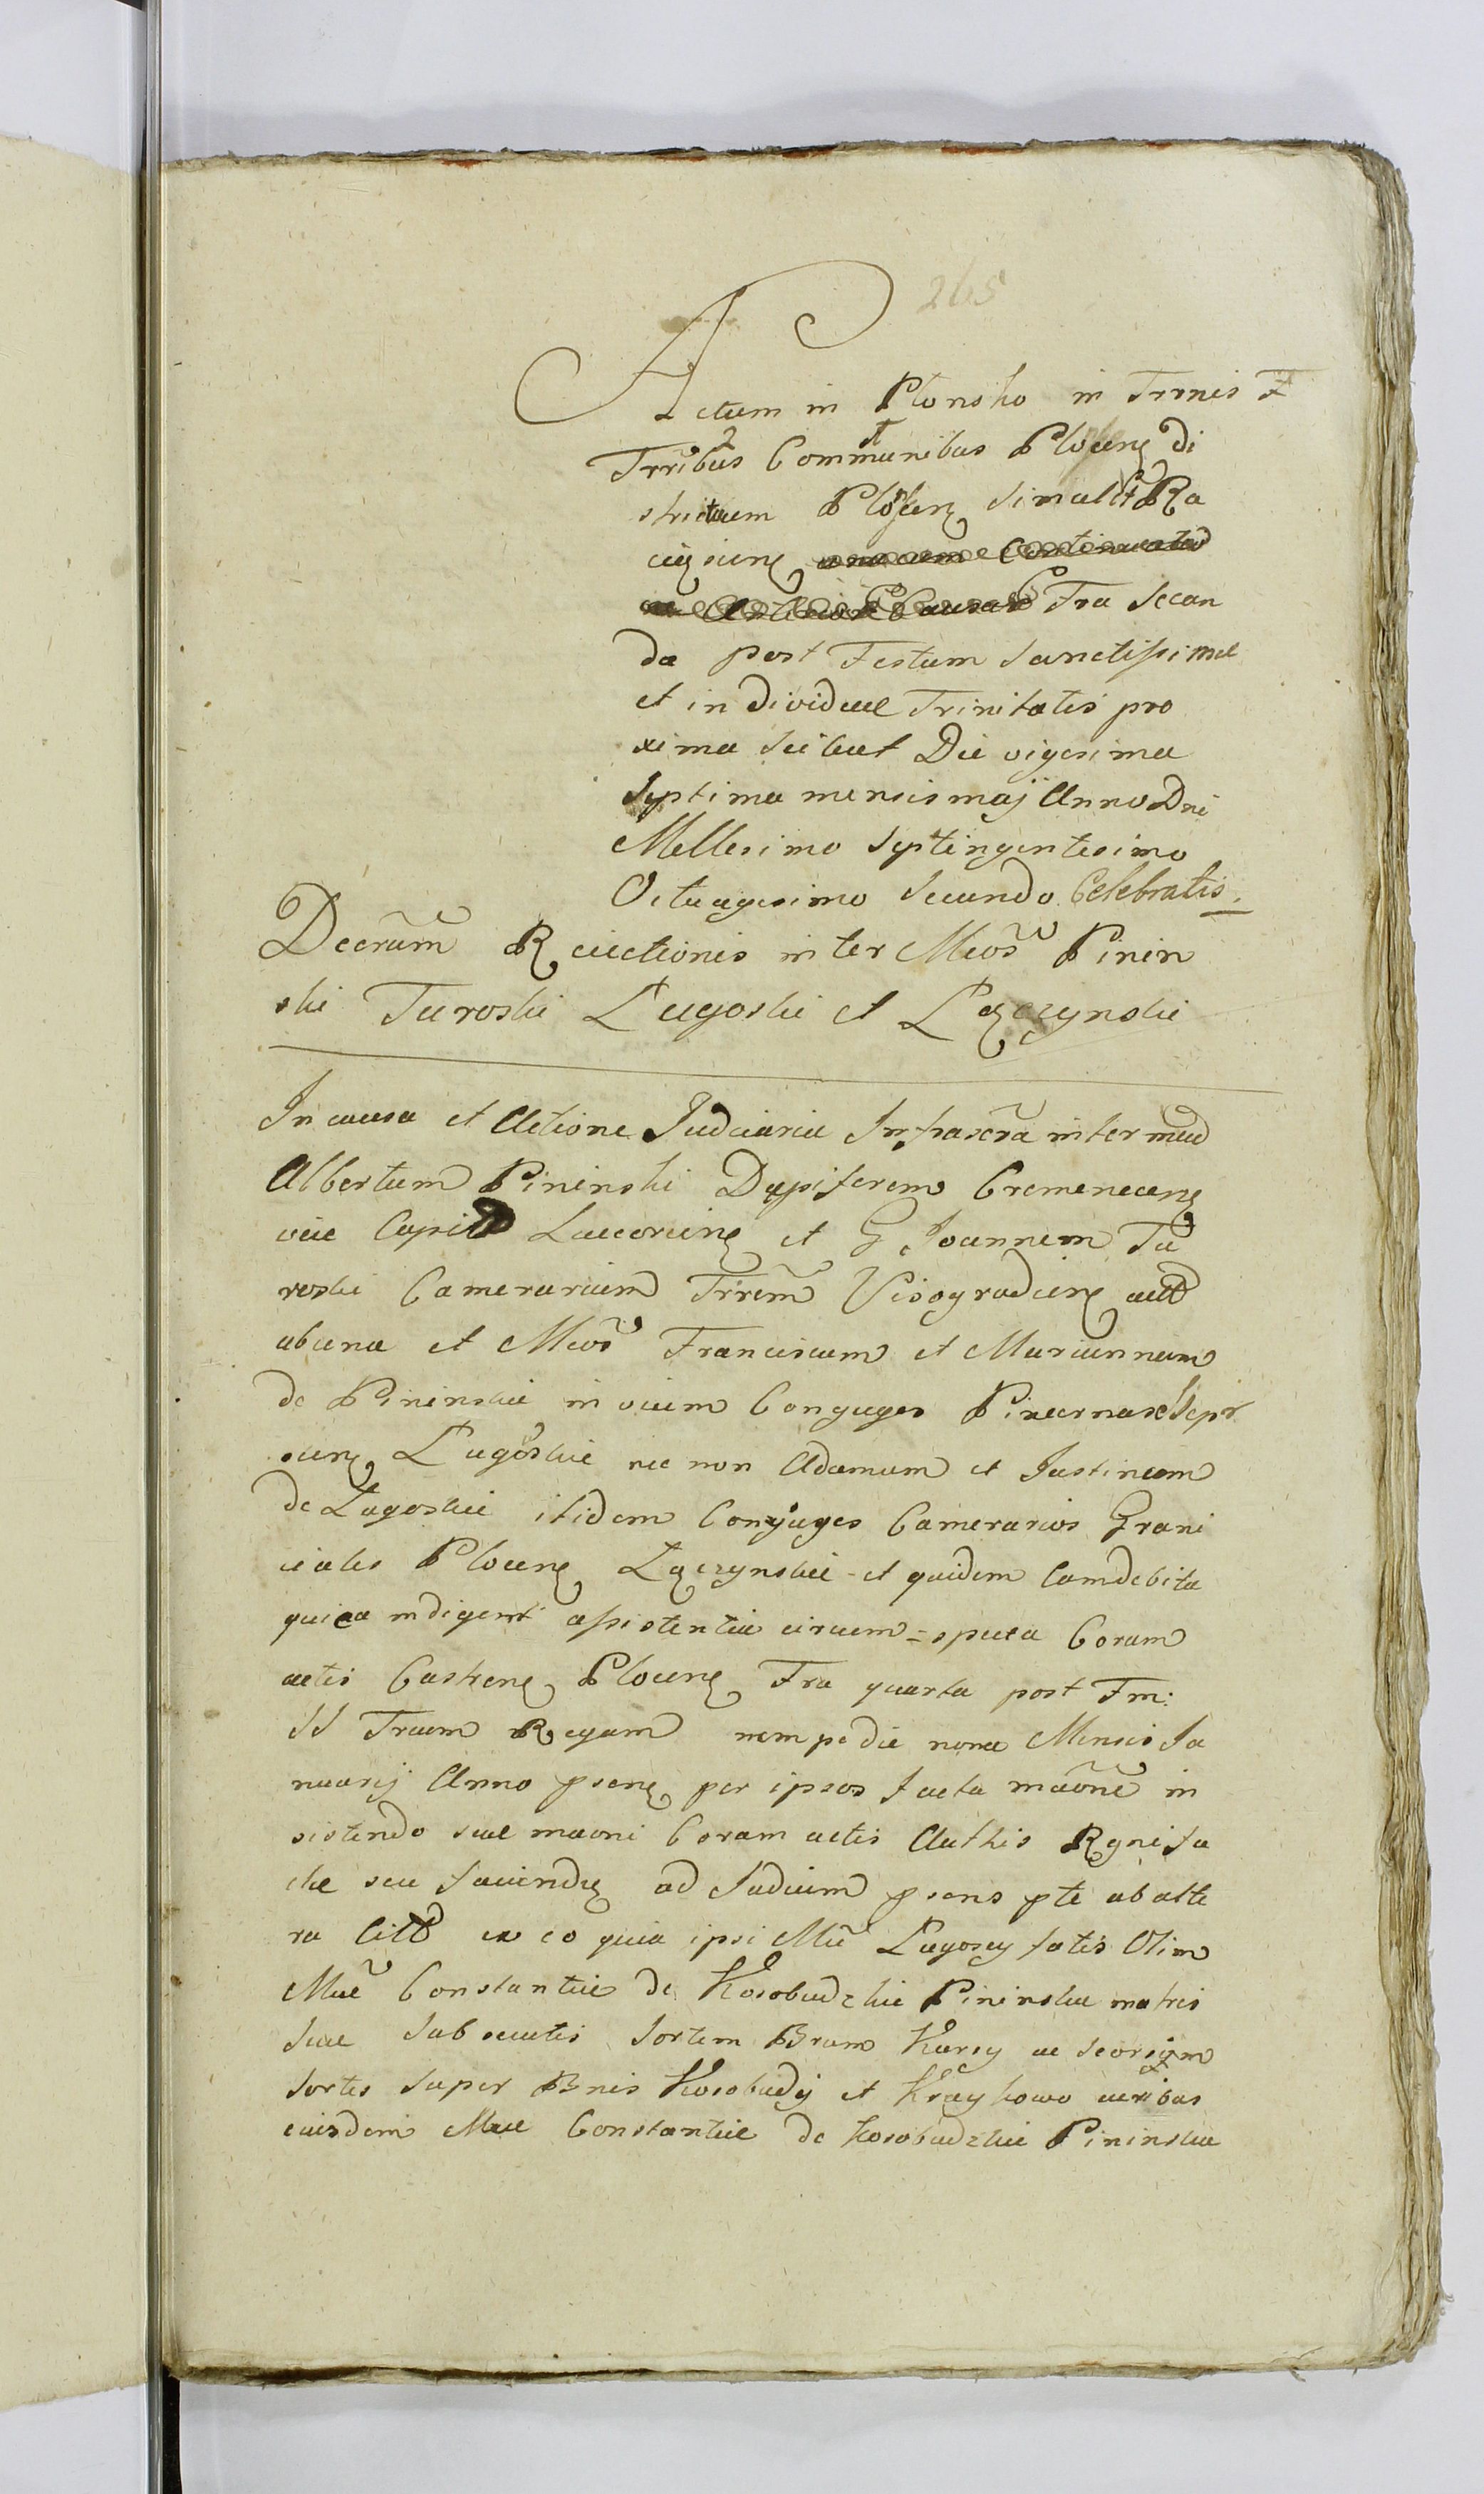 265
Actum in Płonsko in Trrnis F
Trribus Communibus Plocens di
strictuum Plocens simul et Ra
ciąziens unacum Continuatio
Fra Secun
da post Festum Sanctissimae
et individuae Trinitatis pro
xima scilicet Die vigesima
Septima mensis maj Anno Dni
Mellesimo Septingentesimo
Octuagesimo Secundo Celebratis.
Decrum Reiectionis inter Mcos Pinin
ski Turoski Ługoski et Łączynskie
In causa et Actione Judiciaria Infrascra inter mcud
Albertum Pininski Dapiferem Cremenecens
vice Capit Luceoriens et G Joannem Tu
roski Camerarium Trrem Visogradiens act
ab una et Mcos Franciscum et Mariannam
de Pininskie invicem Conjuges Pincernas
siens Ługoskie nec non Adamum et Justinam
de Lugoskie itidem Conjuges Camerarios Grani
ciales Plocens Łączynskie - et quidem Cum debita
quica indigent assistentia circum=specta Coram
actis Castrens Plocens Fra quarta post Fm:
SS Trium Regum nempe die nona Mensis Ja
nuarij Anno psens per ipsos facta maone in
sistendo suae maoni Coram actis Authis Regni fa
ctae seu faciendae ad Judicium psens pte ab alte
ra Citt ex eo quia ipsi Mci Ługoscy fatis Olim
Mcae Constantiae de Kosobudzkie Pininska matris
suae subsecutis sortem Brum Karsy ac seorsym
sortes super Bnis Kosobudy et Kraykowo
eiusdem Mcae Constantiae de Kosobudzkie Pininska